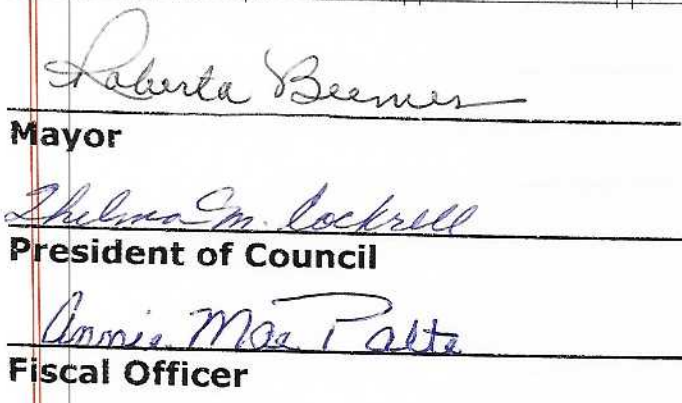 Roberta Beemer
Mayor
Thelma M. Cockrell
President of Council
Annie Mae Palte
Fiscal Officer